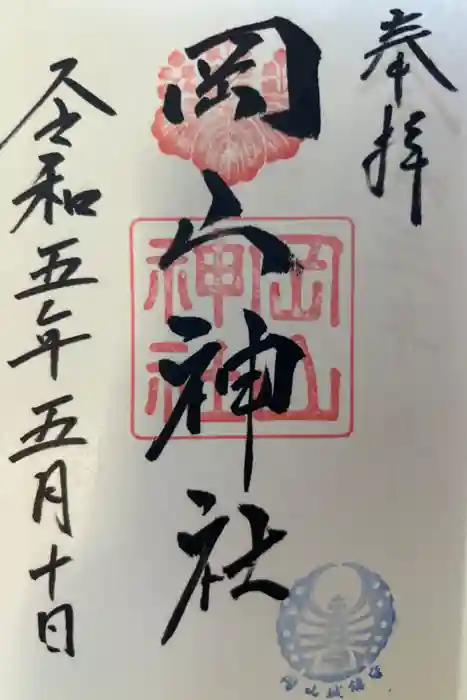 奉拝
岡山神社
岡山
神社
令和五年五月十日